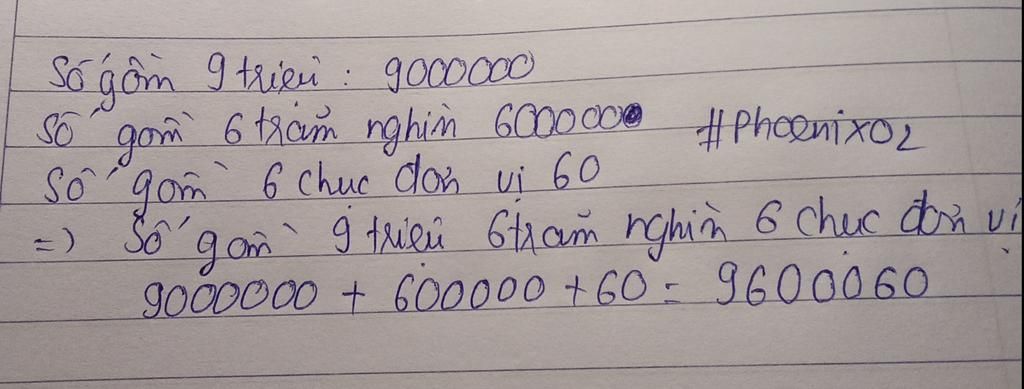 Số gồm 9 triệu : 9000000
Số gồm 6 trăm nghìn 600000 #Phoenix02
Số gồm 6 chục đơn vị 60
=) Số gồm 9 triệu 6 trăm nghìn 6 chục đơn vị
9000000 + 600000 + 60 = 9600060